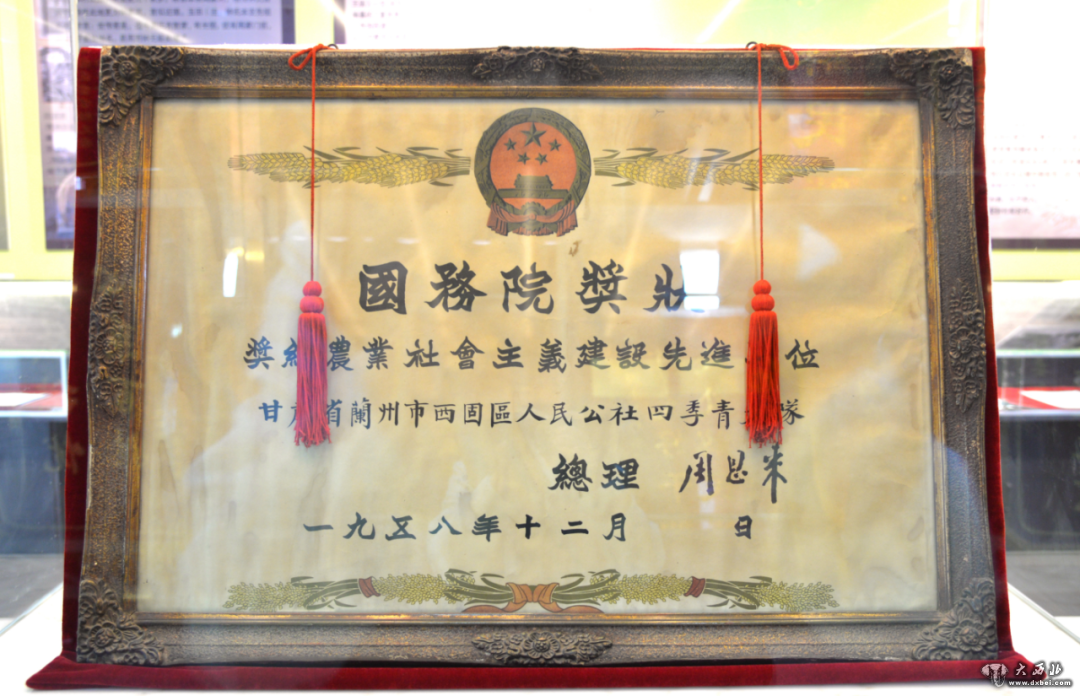 國務院獎狀
獎給農業社會主義建設先進 位
甘肅省蘭州市西固區人民公社四季青 隊
總理 周恩来
一九五八年十二月 日
大西北
www.dxbei.com